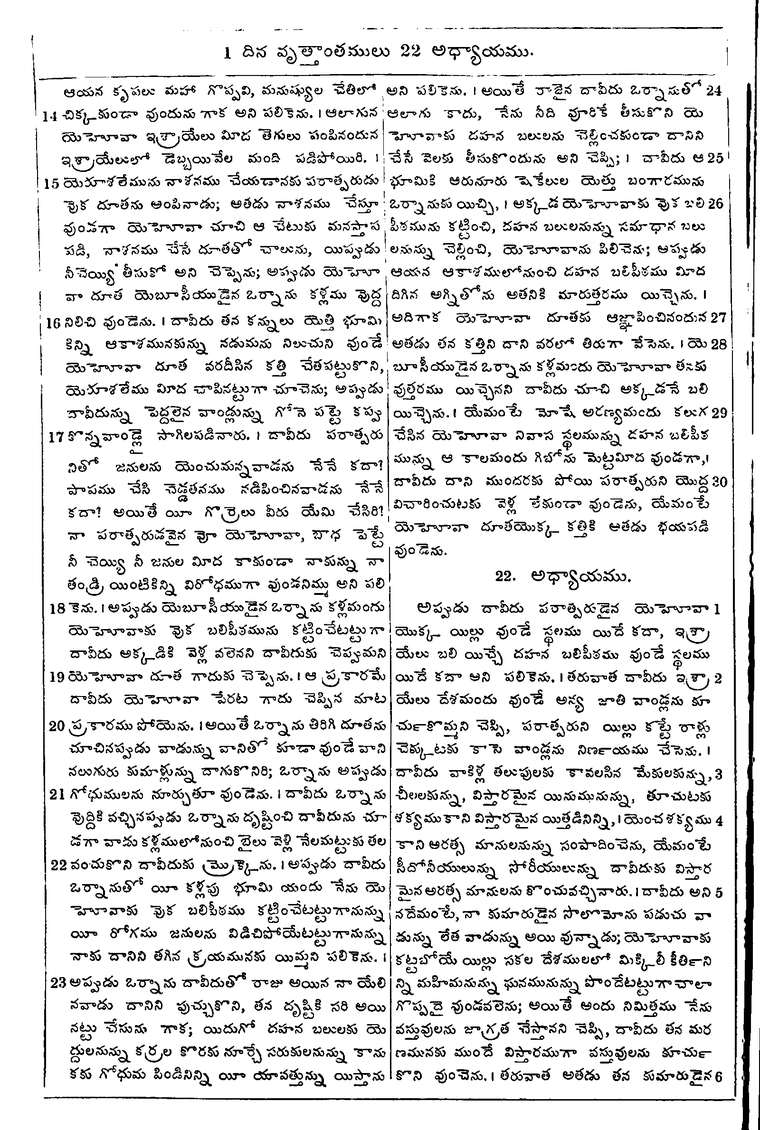 1 దిన వృత్తాంతములు 22 అధ్యాయము.
ఆయన కృపలు మహా గొప్పవి, మనుష్యుల చేతిలో
14 చిక్కకుండా వుందును గాక అని పలికెను. । ఆలాగున
యెహోవా ఇశ్రాయేలు మీద తెగులు పంపినందున
ఇశ్రాయేలులో డెబ్బయివేల మంది పడిపోయిరి. ।
15 యెరూశలేమును నాశనము చేయడానకు పరాత్పరుడు
వొక దూతను అంపినాడు; అతడు నాశనము చేస్తూ
వుండగా యెహోవా చూచి ఆ చేటుకు మనస్తాప
పడి, నాశనము చేసే దూతతో చాలును, యిప్పుడు
నీచెయ్యి తీసుకో అని చెప్పెను; అప్పుడు యెహో
వా దూత యెబూసీయుడైన ఒర్నాను కళ్లము వొద్ద
16 నిలిచి వుండెను. । దావీదు తన కన్నులు యెత్తి భూమి
కిన్ని ఆకాశమునకున్ను నడుమను నిలుచుని వుండే
యెహోవా దూత వరదీసిన కత్తి చేతపట్టుకొని,
యెరూశలేము మీద చాపినట్టుగా చూచెను; అప్పుడు
దావీదున్ను పెద్దలైన వాండ్లున్ను గోనె పట్టె కప్పు
17 కొన్నవాండ్లై సాగిలపడినారు. । దావీదు పరాత్పరు
నితో జనులను యెంచుమన్నవాడను నేనే కదా?
పాపము చేసి చెడ్డతనము నడిపించినవాడను నేనే
కదా? అయితే యీ గొర్రెలు వీరు యేమి చేసిరి?
నా పరాత్పరుడవైన వో యెహోవా, బాధ పెట్టే
నీ చెయ్యి నీ జనుల మీద కాకుండా నాకున్ను నా
తండ్రి యింటికిన్ని విరోధముగా వుండనిమ్ము అని పలి
18 కెను. । అప్పుడు యెబూసీయుడైన ఒర్నాను కళ్లమంగు
యెహోవాకు వొక బలిపీఠమును కట్టించేటట్టుగా
దావీదు అక్కడికి వెళ్ల వలెనని దావీదుకు చెప్పుమని
19 యెహోవా దూత గాదుకు చెప్పెను. । ఆ ప్రకారమే
దావీదు యెహోవా పేరట గాదు చెప్పిన మాట
20 ప్రకారము పోయెను. । అయితే ఒర్నాను తిరిగి దూతను
చూచినప్పుడు వాడున్ను వానితో కూడా వుండే వాని
నలుగురు కుమాళ్లున్ను దాగుకొనిరి; ఒర్నాను అప్పుడు
21 గోధుములను నూర్చుతూ వుండెను. । దావీదు ఒర్నాను
వొద్దికి వచ్చినప్పుడు ఒర్నాను దృష్టించి దావీదును చూ
డగా వాడు కళ్లములోనుంచి బైలు వెళ్లి నేలమట్టుకు తల
22 వంచుకొని దావీదుకు మ్రొక్కెను. । అప్పుడు దావీదు
ఒర్నానుతో యీ కళ్లపు భూమి యందు నేను యె
హోవాకు వొక బలిపీఠము కట్టించేటట్టుగానున్ను
యీ రోగము జనులను విడిచిపోయేటట్టుగానున్ను
నాకు దానిని తగిన క్రయమునకు యిమ్మని పలికెను. ।
23 అప్పుడు ఒర్నాను దావీదుతో రాజు అయిన నా యేలి
నవాడు దానిని పుచ్చుకొని, తన దృష్టికి సరి అయి
నట్టు చేసును గాక; యిదుగో దహన బలులకు యె
ద్దులనున్ను కర్రల కొరకు నూర్చే సరుకులనున్ను కాను
కకు గోధుమ పిండినిన్ని యీ యావత్తున్ను యిస్తాను
అని పలికెను. । అయితే రాజైన దావీదు ఒర్నానుతో 24
ఆలాగు కాదు, నేను నీది వూరికే తీసుకొని యె
హోవాకు దహన బలులను చెల్లించకుండా దానిని
చేసే వెలకు తీసుకొందును అని చెప్పి; । దావీదు ఆ 25
భూమికి ఆరునూరు షెకేలుల యెత్తు బంగారమును
ఒర్నానుకు యిచ్చి, । అక్కడ యెహోవాకు వొక బలి 26
పీఠమును కట్టించి, దహన బలులనున్ను సమాధాన బలు
లనున్ను చెల్లించి, యెహోవాను పిలిచెను; అప్పుడు
ఆయన ఆకాశములోనుంచి దహన బలిపీఠము మీద
దిగిన అగ్నితోను అతనికి మారుత్తరము యిచ్చెను. ।
అదిగాక యెహోవా దూతకు ఆజ్ఞాపించినందున 27
అతడు తన కత్తిని దాని వరలో తిరుగా వేసెను. । యె 28
బూసీయుడైన ఒర్నాను కళ్లమందు యెహోవా తనకు
వుత్తరము యిచ్చెనని దావీదు చూచి అక్కడనే బలి
యిచ్చెను. । యేమంటే మోషే అరణ్యమందు కలుగ 29
చేసిన యెహోవా నివాస స్థలమున్ను దహన బలిపీఠ
మున్ను ఆ కాలమందు గిబోను మెట్టమీద వుండగా, ।
దావీదు దాని ముందరకు పోయి పరాత్పరుని యొద్ద 30
విచారించుటకు వెళ్ల లేకుండా వుండెను, యేమంటే
యెహోవా దూతయొక్క కత్తికి అతడు భయపడి
వుండెను.
22. అధ్యాయము.
అప్పుడు దావీదు పరాత్పరుడైన యెహోవా 1
యొక్క యిల్లు వుండే స్థలము యిదే కదా, ఇశ్రా
యేలు బలి యిచ్చే దహన బలిపీఠము వుండే స్థలము
యిదే కదా అని పలికెను. । తరువాత దావీదు ఇశ్రా 2
యేలు దేశమందు వుండే అన్య జాతి వాండ్లను కూ
ర్చుకొమ్మని చెప్పి, పరాత్పరుని యిల్లు కట్టే రాళ్లు
చెక్కుటకు కాసె వాండ్లను నిర్ణయము చేసెను. ।
దావీదు వాకిళ్ల తలుపులకు కావలసిన మేకులకున్ను, 3
చీలలకున్ను, విస్తారమైన యినుమునున్ను, తూచుటకు
శక్యము కాని విస్తారమైన యిత్తడినిన్ని, । యెంచ శక్యము 4
కాని ఆరత్స మానులనున్ను సంపాదించెను, యేమంటే
సీదోనీయులున్ను సోరీయులున్ను దావీదుకు విస్తార
మైన ఆరత్స మానులను కొంచువచ్చినారు. । దావీదు అని 5
నదేమంటే, నా కుమారుడైన సొలొమోను పడుచు వా
డున్ను లేత వాడున్ను అయి వున్నాడు; యెహోవాకు
కట్టబోయే యిల్లు సకల దేశములలో మిక్కిలీ కీర్తిని
న్ని మహిమనున్ను ఘనమునున్ను పొందేటట్టుగా చాలా
గొప్పదై వుండవలెను; అయితే అందు నిమిత్తము నేను
వస్తువులను జాగ్రత చేస్తానని చెప్పి, దావీదు తన మర
ణమునకు ముందే విస్తారముగా వస్తువులను కూర్చు
కొని వుంచెను. । తరువాత అతడు తన కుమారుడైన 6